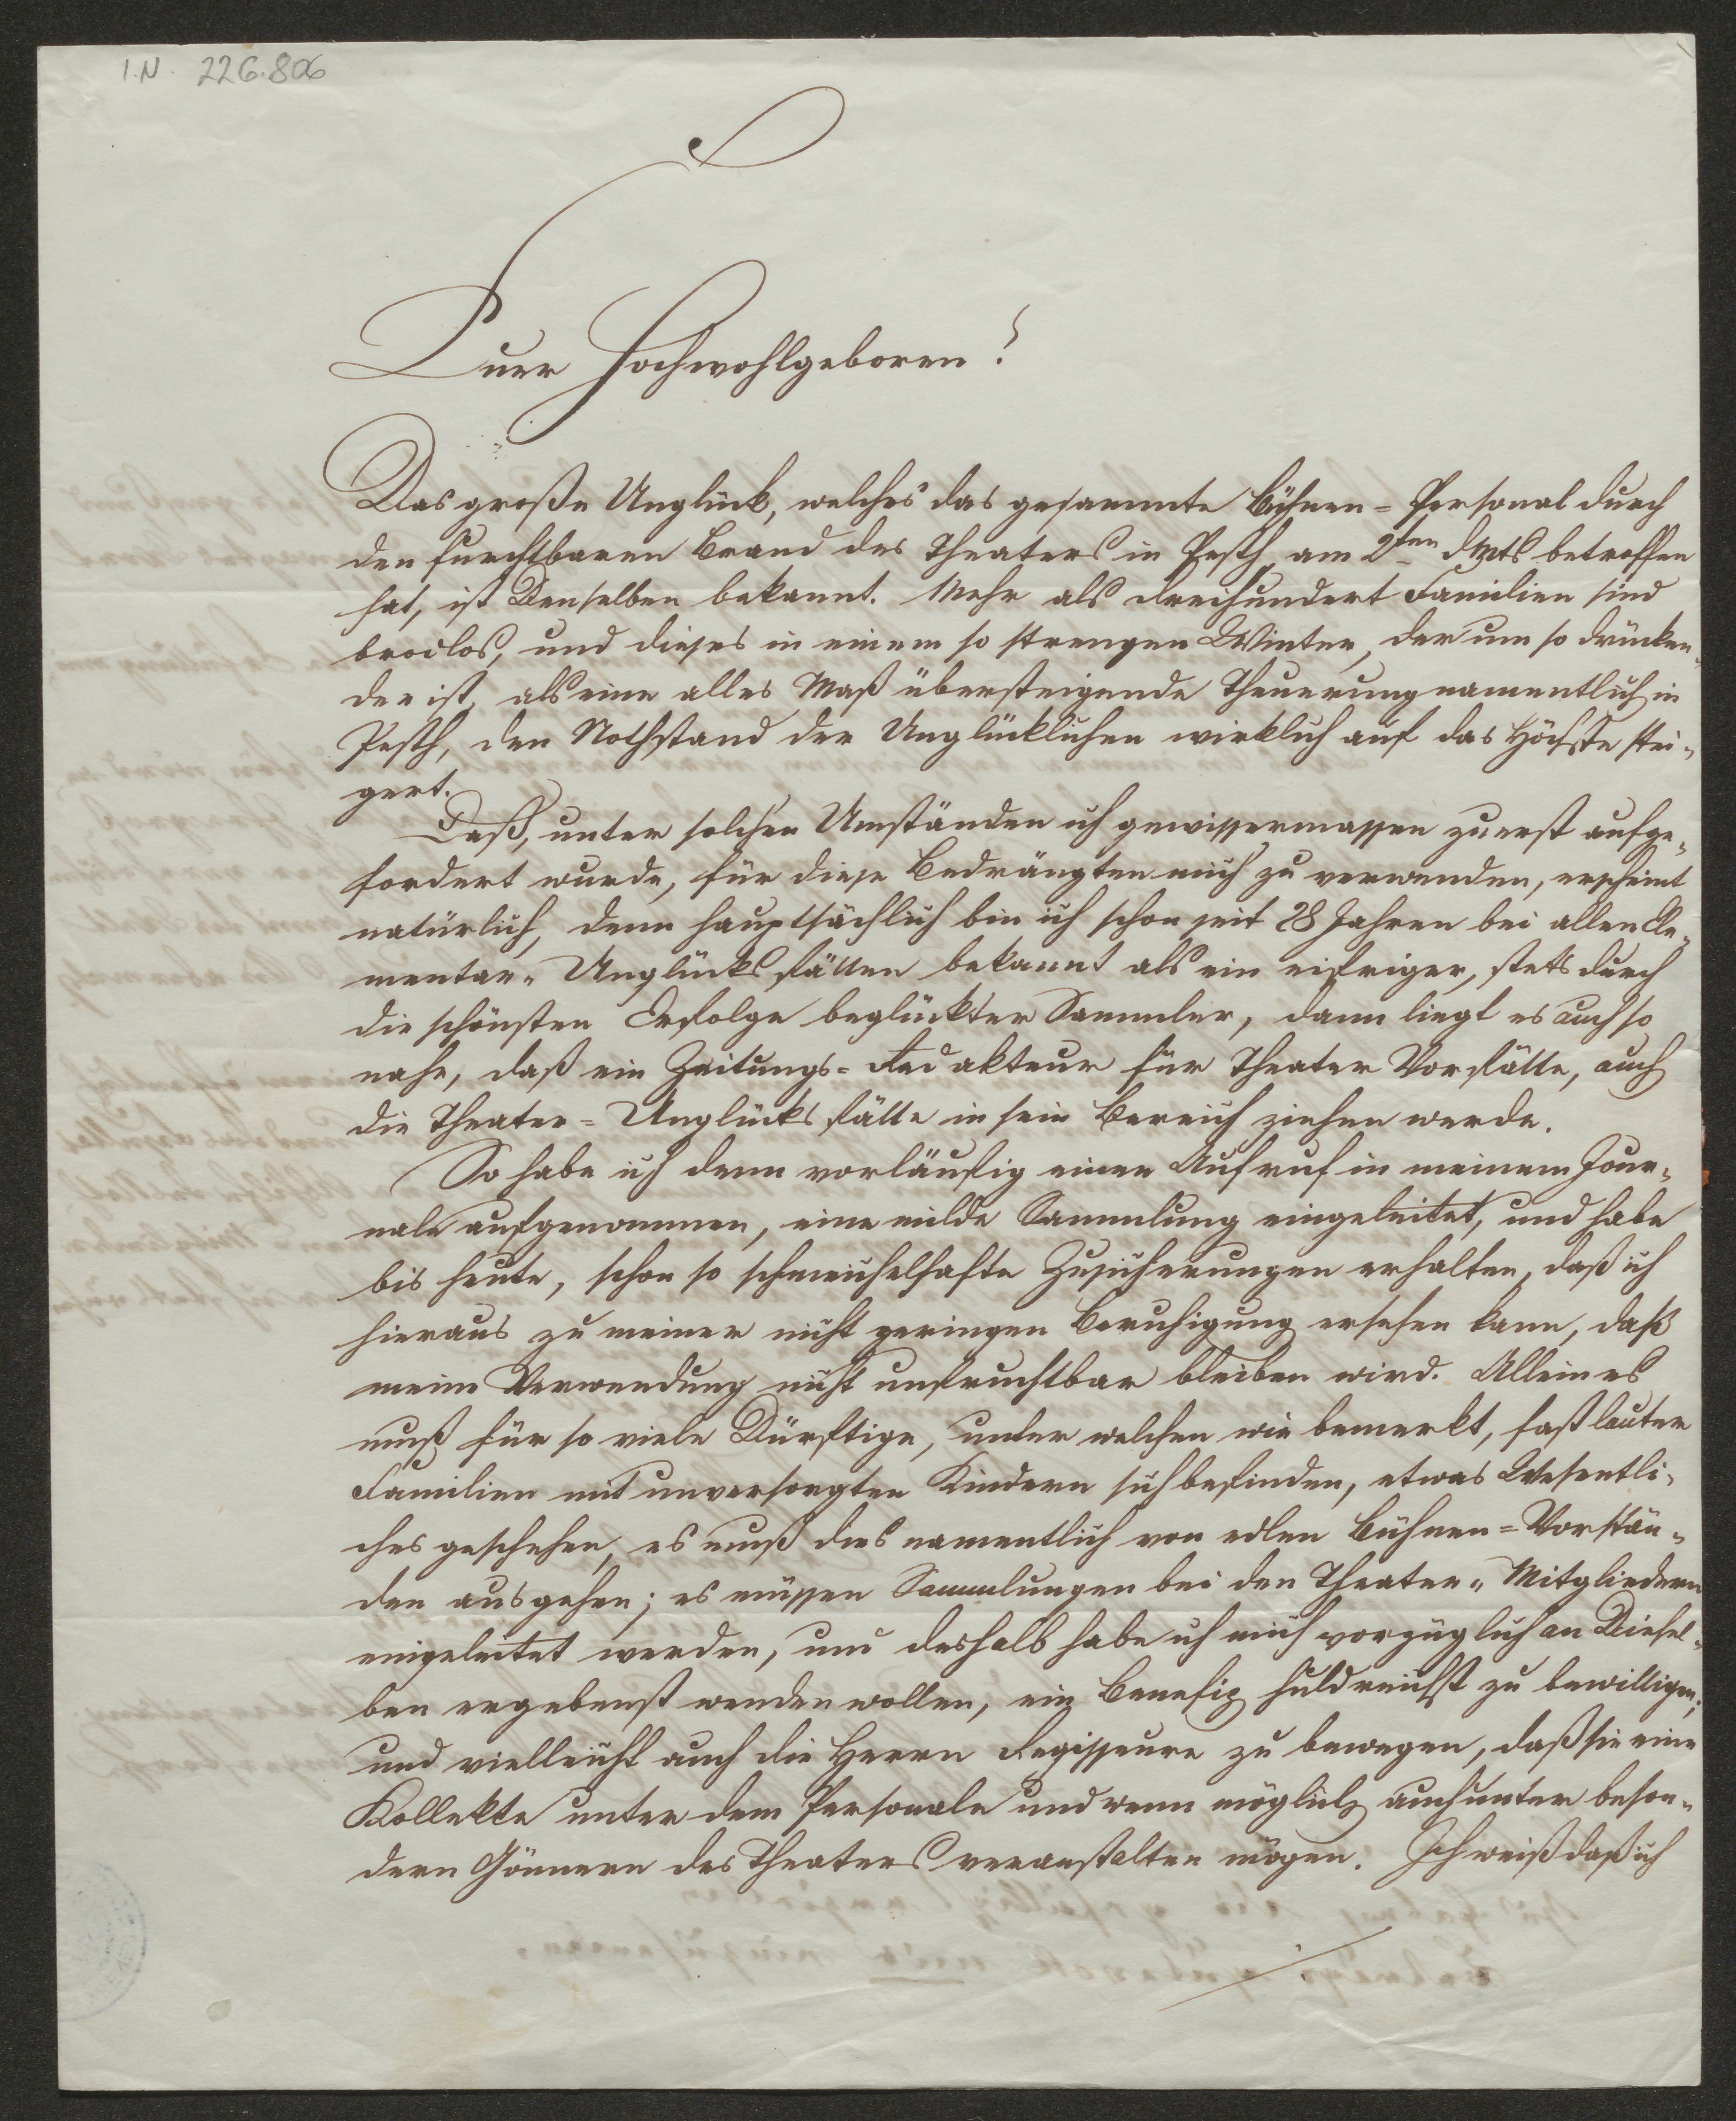 I.N. 226.806
Euer Hochwohlgeboren!
Das große Unglück, welches das gesammte Bühnen=Personal durch
den furchtbaren Brand des Theaters in Pesth am 2ten d Mts betroffen
hat, ist Denselben bekannt. Mehr als dreihundert Familien sind
brodlos, und dieses in einem so strengen Winter, der um so drücken¬
der ist, als eine alles Maß übersteigende Theuerung namentlich in
Pesth, den Nothstand der Unglücklichen wirklich auf das Höchste stei¬
gert.
Daß, unter solchen Umständen ich gewissermassen zuerst aufge¬
fordert wurde, für diese Bedrängten mich zu verwenden, erscheint
natürlich, denn hauptsächlich bin ich schon seit 28 Jahren bei allen Ele¬
mentar=Unglücksfällen bekannt als ein eifriger, stets durch
die schönsten Erfolge beglückter Sammler, dann liegt es auch so
nahe, daß ein Zeitungs=Redakteur für Theater Vorfälle, auch
die Theater=Unglücksfälle in sein Bereich ziehen werde.
So habe ich denn vorläufig einen Aufruf in meinem Jour¬
nale aufgenommen, eine milde Sammlung eingeleitet, und habe
bis heute, schon so schmeichelhafte Zusicherungen erhalten, daß ich
hieraus zu meiner nicht geringen Beruhigung ersehen kann, daß
meine Verwendung nicht unfruchtbar bleiben wird. Allein es
muß für so viele Dürftige, unter welchen wie bemerkt, fast lauter
Familien mit unversorgten Kindern sich befinden, etwas Wesentli¬
ches geschehen, es muß dies namentlich von edlen Bühnen=Vorstän¬
den ausgehen; es müssen Sammlungen bei den Theater=Mitgliedern
eingeleitet werden, und deshalb habe ich mich vorzüglich an Diesel¬
ben ergebenst wenden wollen, ein Benefiz huldreichst zu bewilligen,
und vielleicht auch die Herrn Regisseure zu bewegen, daß sie eine
Kollekte unter dem Personale und wenn möglich auch unter beson¬
dern Gönnern des Theaters veranstalten mögen. Ich weiß daß ich
./.